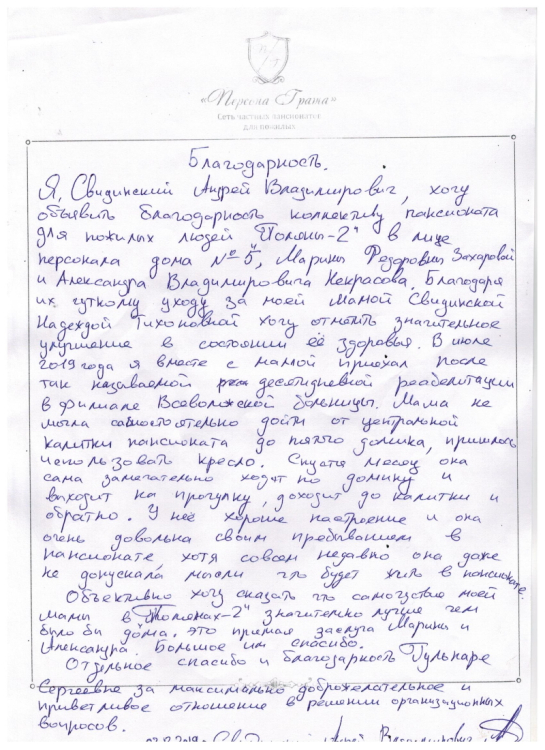 П Г
«Персона Грата»
Сеть частных пансионатов
для пожилых
Благодарность.
Я, Свидинский Андрей Владимирович, хочу
объявить благодарность коллективу пансионата
для пожилых людей "Поляны-2" в лице
персонала дома № 5, Марины Федоровны Захаровой
и Александра Владимировича Некрасова. Благодаря
их чуткому уходу за моей мамой Свидинской
Надеждой Тихоновной хочу отметить значительное
улучшение в состоянии её здоровья. В июле
2019 года я вместе с мамой приехал после
так называемой десятидневной реабелитации
в филиале Всеволжской больницы. Мама не
могла самостоятельно дойти от центральной
калитки пансионата до пятого домика, пришлось
использовать кресло. Спустя месяц она
сама замечательно ходит по домику и
выходит на прогулку, доходит до калитки и
обратно. У неё хорошее настроение и она
очень довольна своим пребыванием в
пансионате хотя совсем недавно она даже
не допускала мысли что будет жить в пансионате.
Объективно хочу сказать что самочуствие моей
мамы в "Полянах-2" значительно лучше чем
было бы дома. Это прямая заслуга Марины и
Александра. Большое им спасибо.
Отдельное спасибо и благодарность Гульнаре
Сергеевне за максимально доброжелательное и
приветливое отношение в решении организационных
вопросов.
Андрей Владимирович